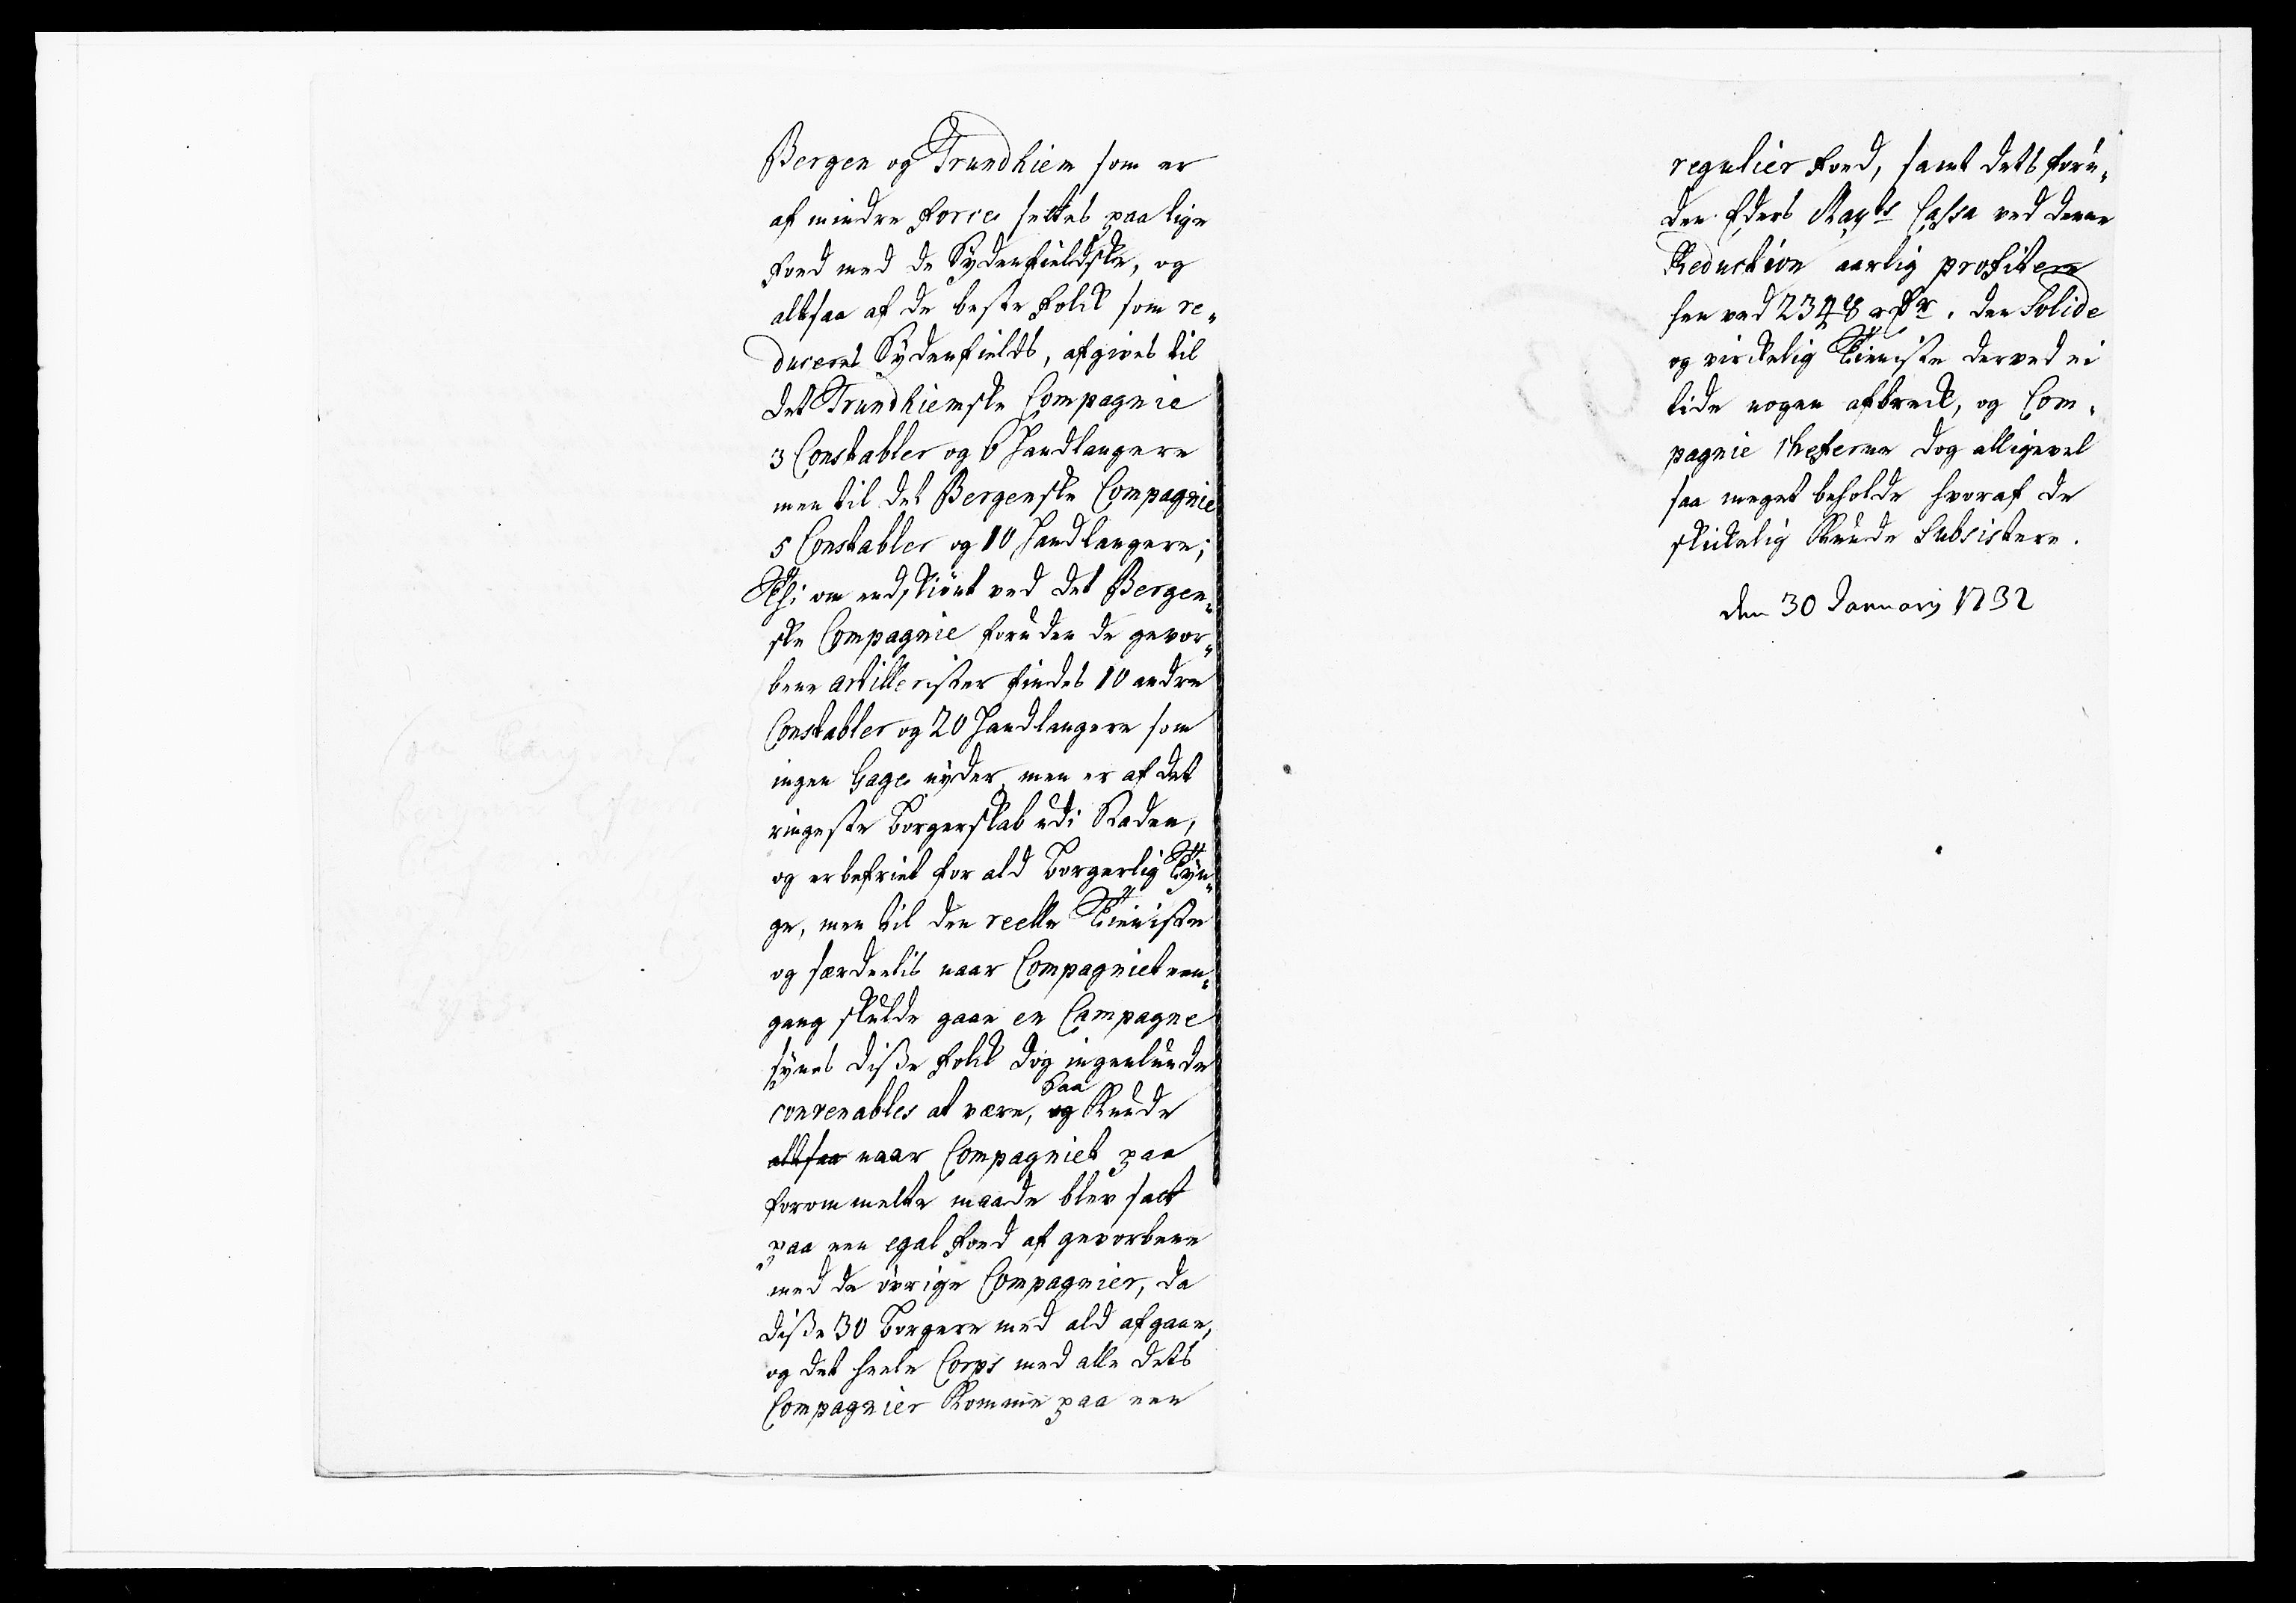 Bergen og Trundhiem som er
af mindre Force settes paa lige
Foed med de Sydenfieldske, og
altsaa af de beste Folck som re-
duceres Sydenfields, afgives til
det Trundhiemske Compagnie
3 Constabler og 6 Handlangere
men til det Bergenske Compagnie
5 Constabler og 10 Handlangere;
Thi om endskiönt ved det Bergen-
ske Compagnie foruden de gevor-
bene artillerister findes 10 andre
Constabler og 20 Handlangere som
ingen Gage nyder, men er af det
ringeste Borgerskab udi Staden,
og er befriet for ald Borgerlig Tyn-
ge, men til den reelle Tieniste
og særdeelis naar Compagniet een-
gang skulde gaae en Campagne
synes disse Folck dog ingenlunde
convenables at være, og Kunde
saa
altsaa naar Compagniet paa
forommelte maade blev satt
paa een egal Foed af gevorbene
med de övrige Compagnier, da
disse 30 Borgere med ald afgaae,
og det heele Corps med alle dets
Compagnier Komme paa een
regulier Foed, samt dets foru-
den Eders Mayts Cassa ved denne
Reduction aarlig profitere
hen ved 2348 rdr. den Solide
og virckelig Tieniste derved ei
lide nogen afbreck, og Com-
pagnie Cheferne dog alligevel
saa meget beholde hvoraf de
skickelig Kunde Subsistere.
den 30 Januarij 1732